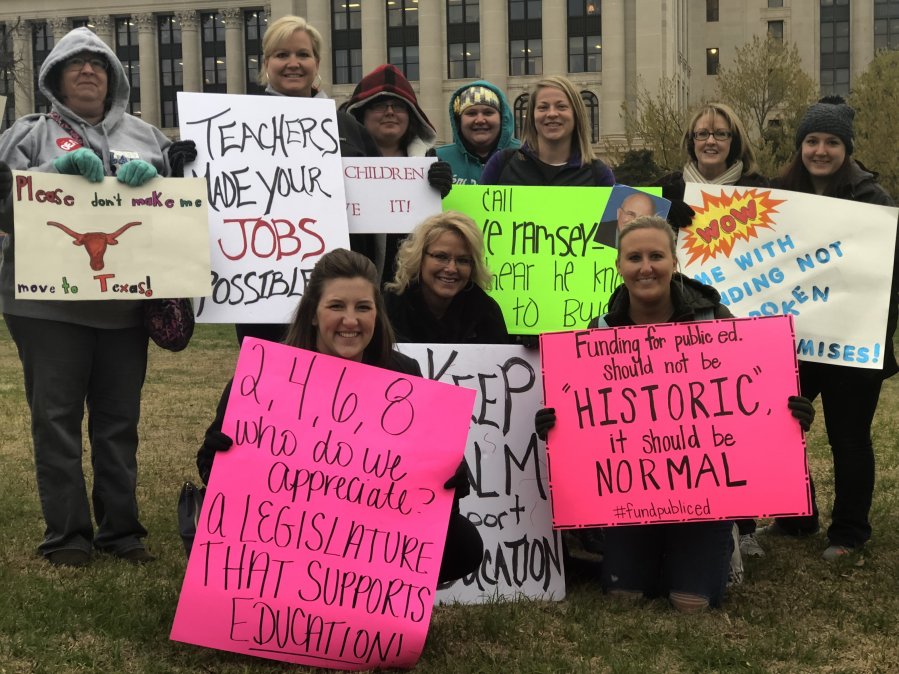 Please don't make me
move to Texas!
TEACHERS
MADE YOUR
JOBS
POSSIBLE
CHILDREN
E IT!
CALL
VE RAMSEY-
HEAR HE KN
TO BU
WOW
ME WITH
NDING NOT
OKEN
MISES!
2, 4, 6, 8
who do we
appreciate?
A LEGISLATURE
THAT SUPPORTS
EDUCATION!
KEEP
ALM
port
UCATION
Funding for public ed.
should not be
"HISTORIC",
it should be
NORMAL
#fundpubliced